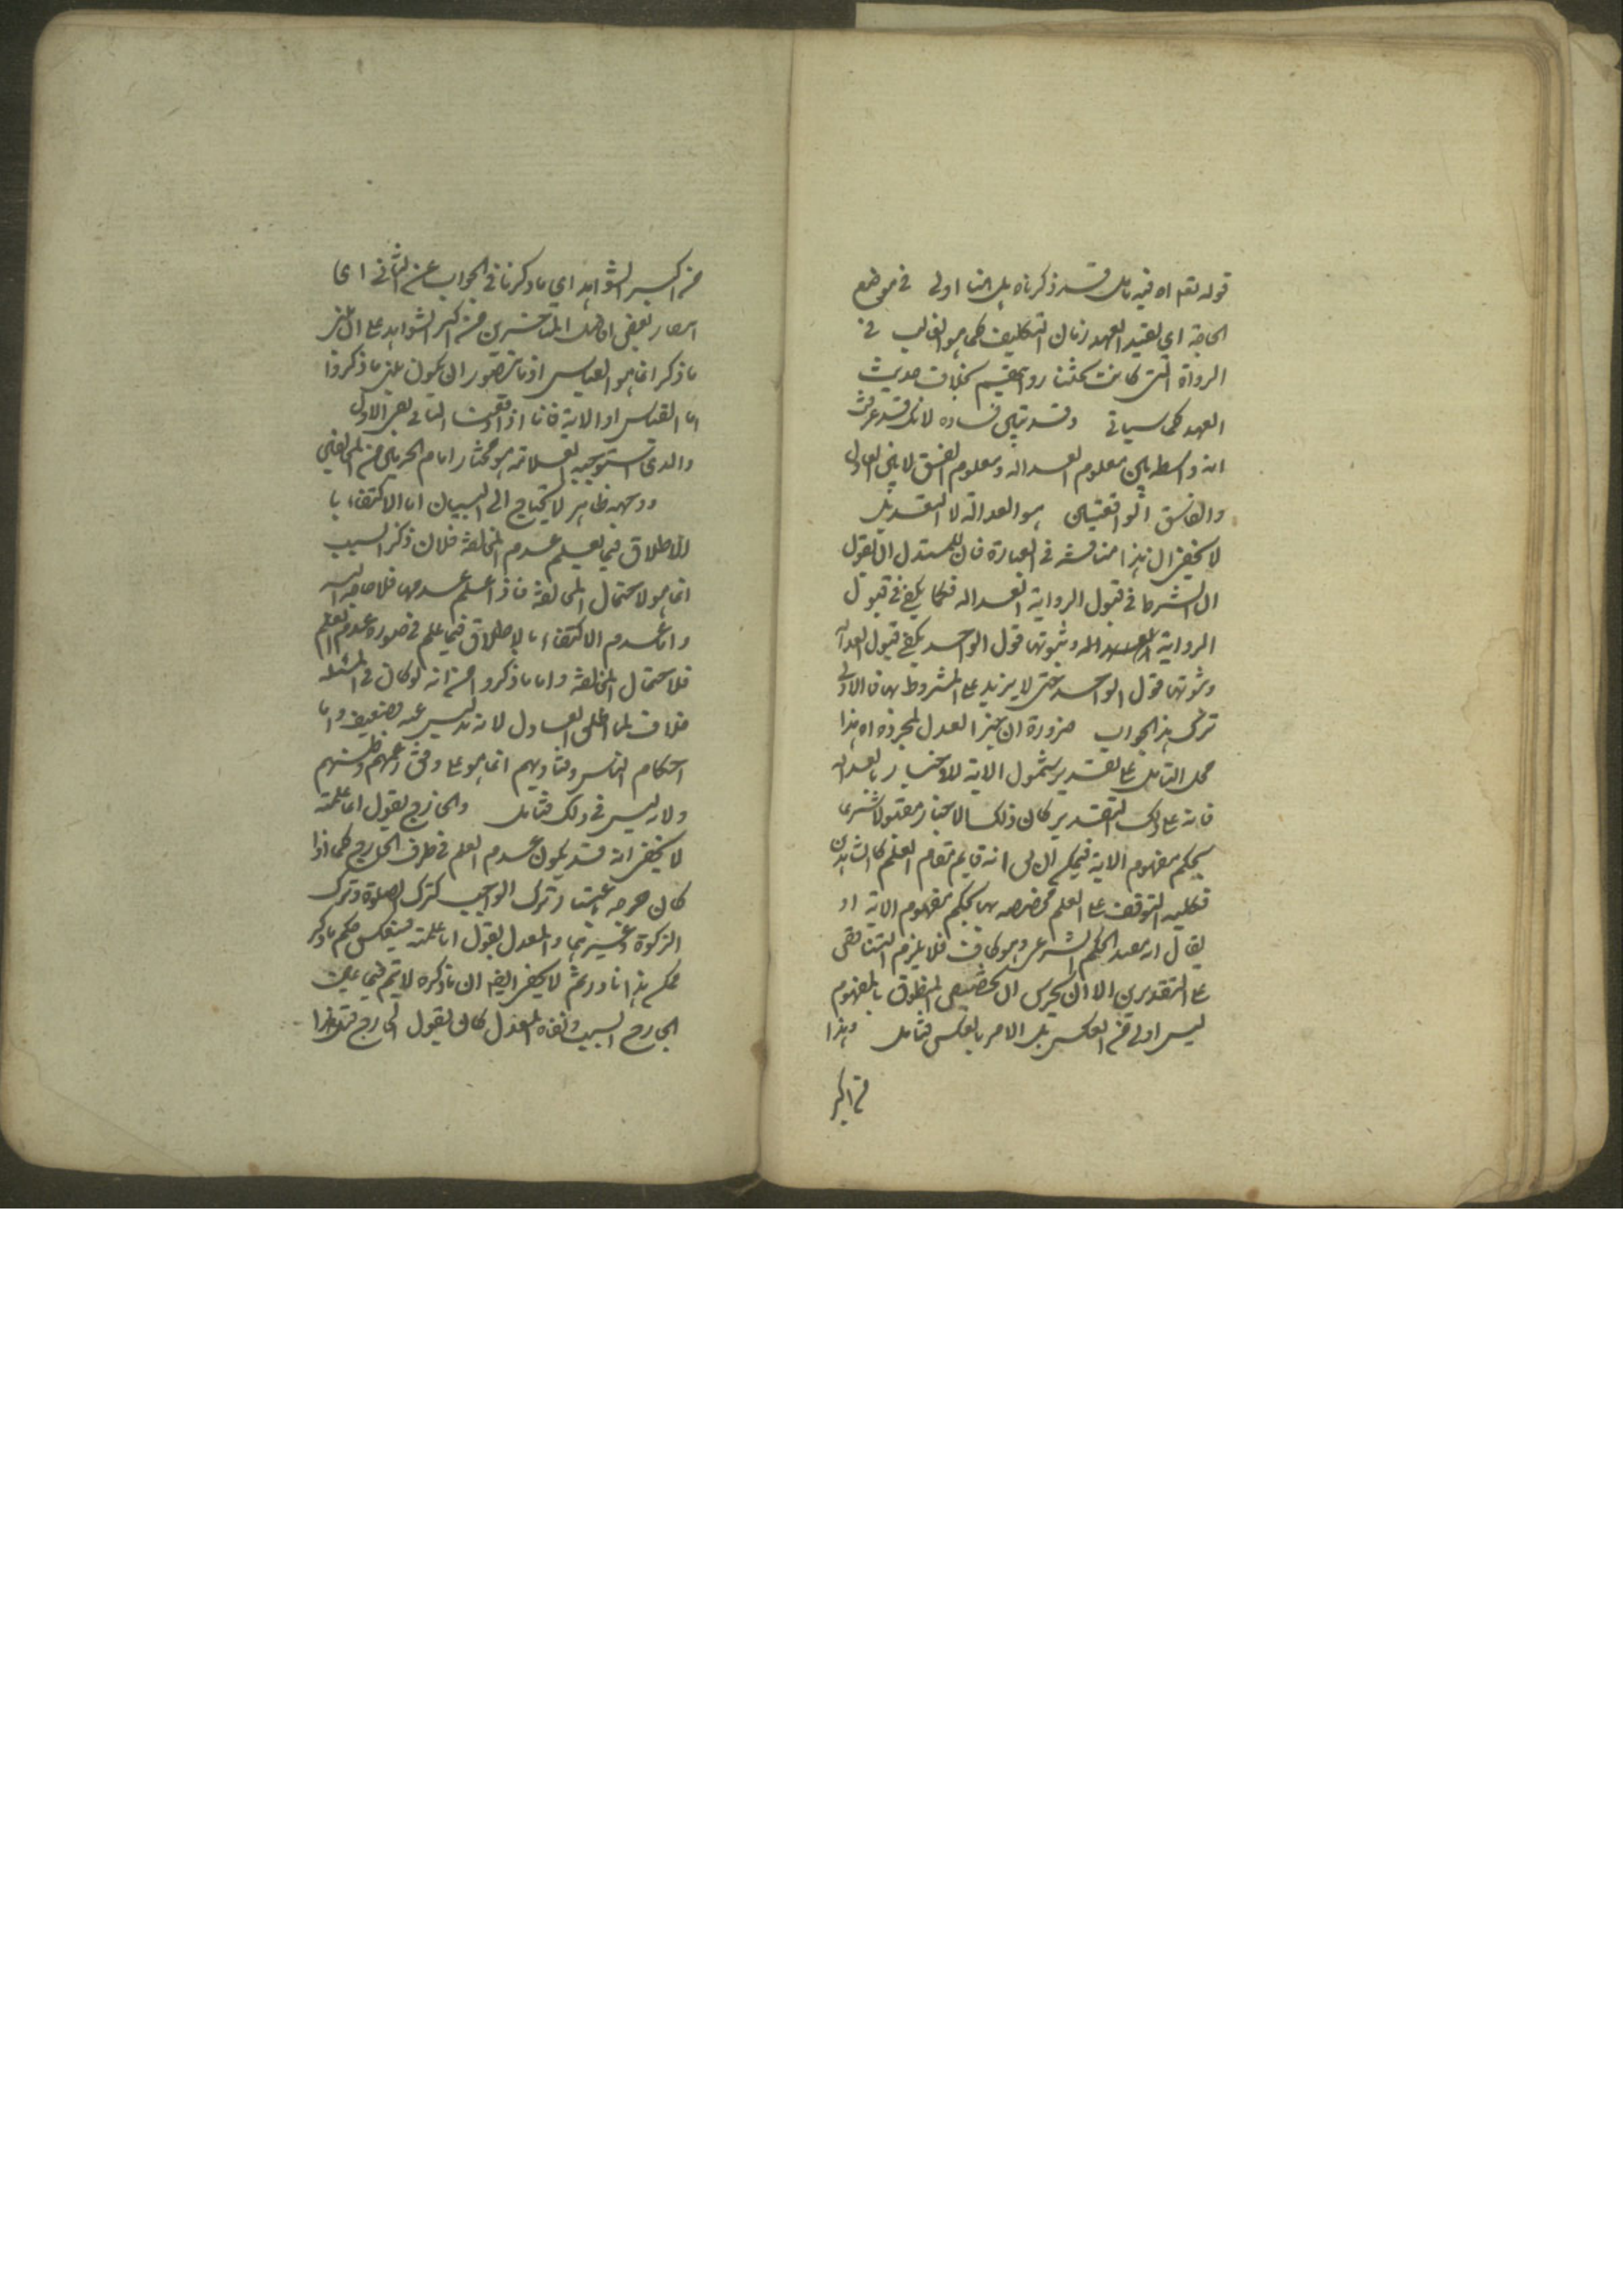 قوله نعم اه فيه تامل قد ذكرناه بل هنا اولى في موضع
الحاجة اي بعيد العهد زمان التكليف كما هو الغالب في
الرواة التي كانت روايتهم بخلاف حديث
العهد كما سياتي وقد تبين فساده لانك قد عرفت
انه واسطه بين معلوم العداله ومعلوم الفسق لا بين العادل
والفاسق الواقعيين هو العدالة لا التعديل
لا يخفى ان هذا مناقشة في العبارة فان للمستدل ان يقول
ان الشرط في قبول الرواية العداله فكما يكفي في قبول
الرواية وثبوتها قول الواحد يكفي قبول العدالة
وثبوتها قول الواحد حتى لا يزيد على المشروط بها فالاولى
ترك هذا الجواب ضرورة ان خبر العدل بمجرده اه هذا
محل التامل على تقدير شمول الاية للاخبار بالعداله
فانه على ذلك التقدير كان ذلك الاخبار مقبولا شرعا
بحكم مفهوم الاية فيمكن ان انه قايم مقام العلم كالشاهدين
فكليه التوقف على العلم مخصصه بها بحكم مفهوم الاية او
يقال انه يفيد الحكم الشرعي وهو كاف فلا يلزم التناقض
على التقديرين الا ان ان تخصيص المنطوق بالمفهوم
ليس اولى من العكس بل الامر بالعكس فتامل وهذا
من اكبر
من اكبر الشواهد اي ما ذكرنا في الجواب عن الثاني اي
بعض المتاخرين من اكبر الشواهد على ان
ما ذكر انما هو القياس اذ ما يتصور ان يكون غير ما ذكروا
اما القياس او الاية فاذا انتفى الثاني بقي الاول
والذي تستوجبه العلامة هو مختار امام الحرمين من
ووجهه ظاهر لا يحتاج الى البيان اما الاكتفاء با
لاطلاق فيما يعلم عدم المخالفة فلان ذكر السبب
انما هو لاحتمال المخالفة فاذا علم عدمها فلا حاجة اليه
واما عدم الاكتفاء بالاطلاق فيما علم في صورة عدم العلم
فلاحتمال المخالفة واما ما ذكروا من انه لو كان في المسئله
خلاف لما اطلق العادل لانه تدليس منه فضعيف واما
احكام الناس وفتاويهم انما هو على وفق زعمهم وظنهم
ولا تدليس في ذلك فتامل والجارح يقول اني علمته
لا يخفى انه قد يكون عدم العلم في طرف الجارح كما اذا
كان جرحه باعتبار ترك الواجب كترك الصلوة وترك
الزكوة وغيرهما والمعدل يقول انا علمته فينعكس حكم ما ذكر
لا يخفى ايضا ان ما ذكره لا يتم فيما عين
الجارح السبب ونفاه المعدل كان يقول الجارح هذا